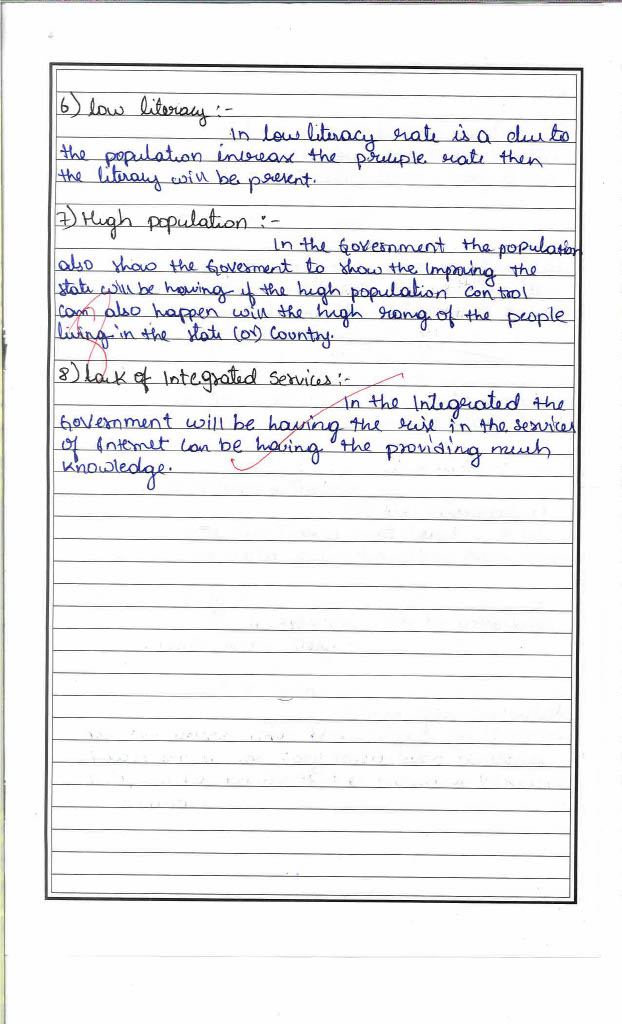 6) low literacy :-
In low literacy rate is a due to
the population increase the rate then
the literacy will be present.
7) High population :-
In the Government the population
also show the Goverment to show the Improving the
state will be having if the high population control
can also happen will the high rang of the people
living in the state (or) Country.
8) lack of Integrated Services :-
In the Integrated the
Government will be having the rise in the services
of Internet can be having the providing much
Knowledge.